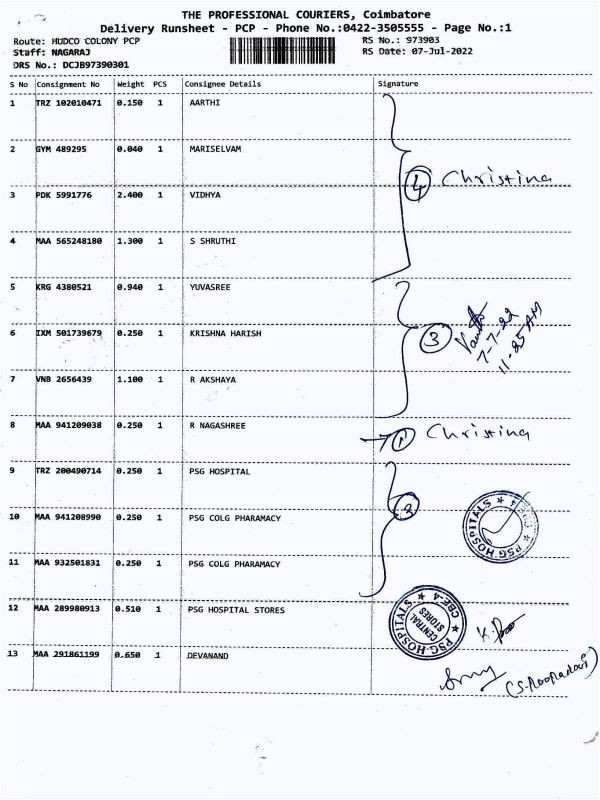 THE PROFESSIONAL COURIERS, Coimbatore
Delivery Runsheet - PCP - Phone No.:0422-3505555 - Page No.:1
Route: HUDCO COLONY PCP RS No.: 973903
Staff: NAGARAJ RS Date: 07-Jul-2022
DRS No.: DCJB97390301
S No Consignment No Weight PCS Consignee Details Signature
1 TRZ 102010471 0.150 1 AARTHI
2 GYM 489295 0.040 1 MARISELVAM
4 Christina
3 PDK 5991776 2.400 1 VIDHYA
4 MAA 565248180 1.300 1 S SHRUTHI
5 KRG 4380521 0.940 1 YUVASREE
6 IXM 501739679 0.250 1 KRISHNA HARISH
3 7-7-22
11-25 AM
7 VNB 2656439 1.100 1 R AKSHAYA
8 MAA 941209038 0.250 1 R NAGASHREE
1 Christina
9 TRZ 200490714 0.250 1 PSG HOSPITAL
2
10 MAA 941208990 0.250 1 PSG COLG PHARAMACY
PSG HOSPITALS
11 MAA 932501831 0.250 1 PSG COLG PHARAMACY
12 MAA 289980913 0.510 1 PSG HOSPITAL STORES
PSG HOSPITALS CBE-4
CENTRAL STORES
13 MAA 291861199 0.650 1 DEVANAND